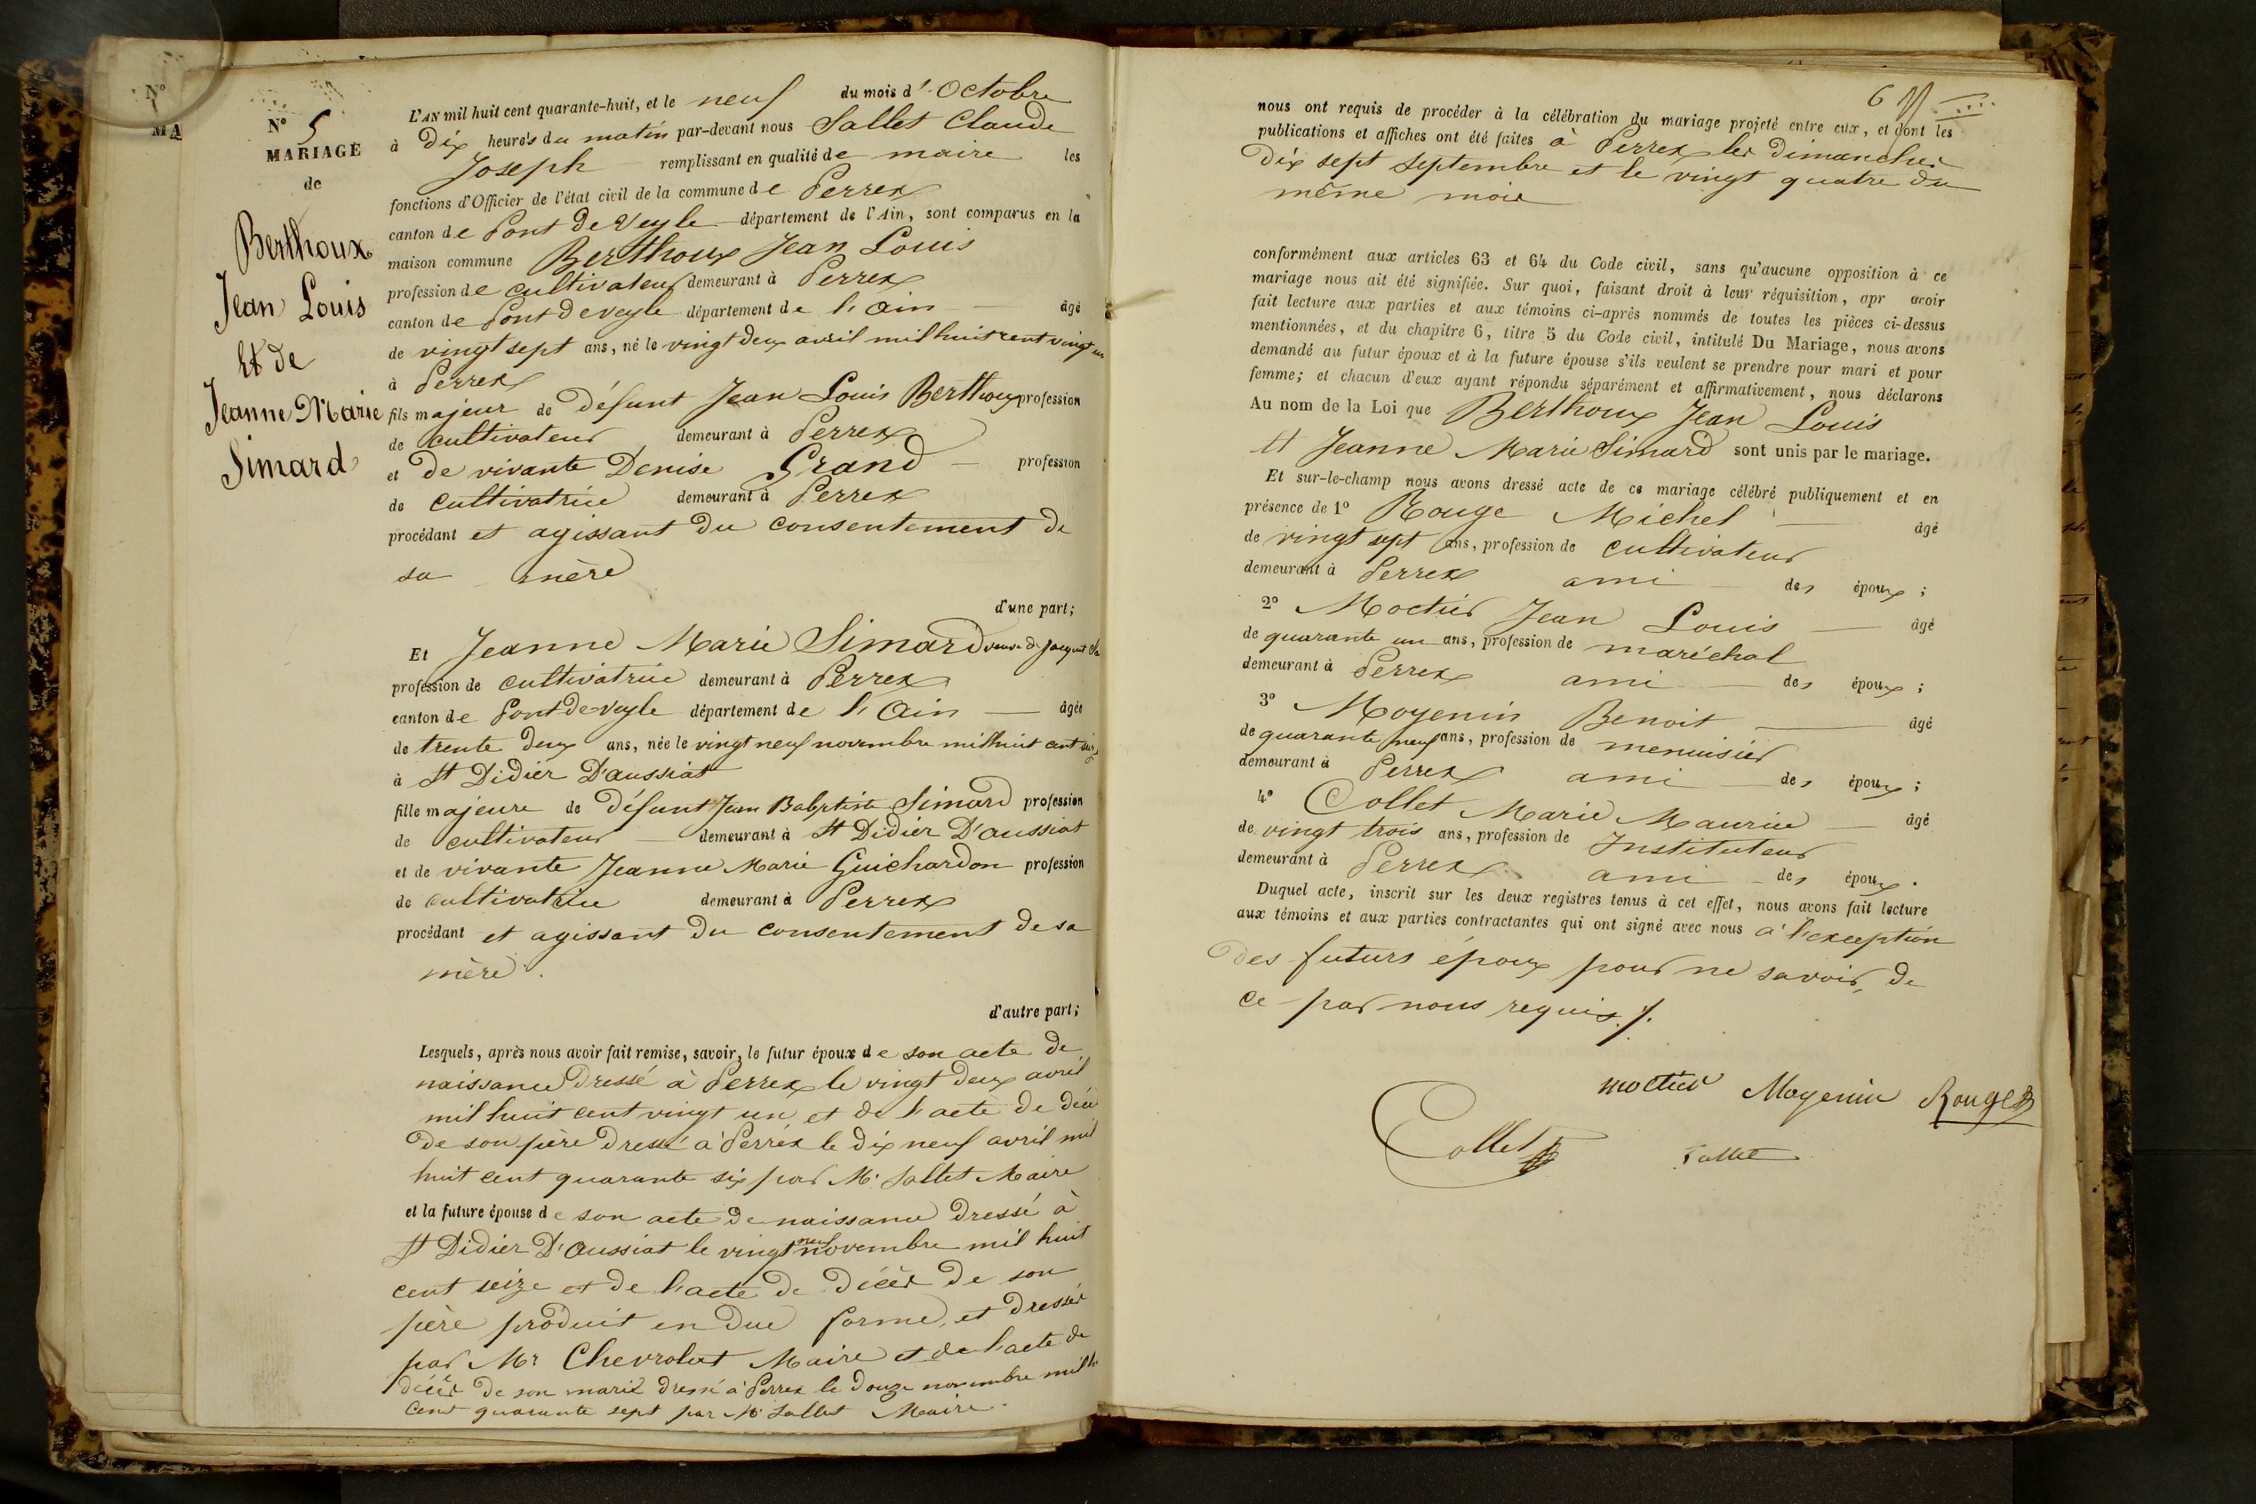 N°
MA
N° 5
MARIAGE
de
Berthoux
Jean Louis
Et de
Jeanne Marie
Simard
L'AN mil huit cent quarante-huit, et le neuf du mois d'Octobre
à Dix heures du matin par-devant nous Sallet Claude
Joseph remplissant en qualité de maire les
fonctions d'Officier de l'état civil de la commune de Perrex
canton de Pont De Veyle département de l'Ain, sont comparus en la
maison commune Berthoux Jean Louis
profession de cultivateur demeurant à Perrex
canton de Pont de veyle département de l'Ain âgé
de vingt sept ans, né le vingt deux avril mil huit cent vingt un
à Perrex
fils majeur de Défunt Jean Louis Berthoux profession
de cultivateur demeurant à Perrex
et de vivante Denise Grand profession
de cultivatrice demeurant à Perrex
procédant et agissant du consentement de
sa mère
d'une part;
Et Jeanne Marie Simard veuve de Jacquet
profession de cultivatrice demeurant à Perrex
canton de Pont-de-veyle département de l'Ain âgée
de trente deux ans, née le vingt neuf novembre mil huit cent
à St Didier D'aussiat
fille majeure de Défunt Jean Babptiste Simard profession
de cultivateur demeurant à St Didier D'aussiat
et de vivante Jeanne Marie Guichardon profession
de cultivatrice demeurant à Perrex
procédant et agissant du consentement de sa
mère.
d'autre part;
Lesquels, après nous avoir fait remise, savoir, le futur époux de son acte de
naissance Dressé à Perrex le vingt deux avril
mil huit cent vingt un et de l'acte de décé
de son père dressé à Perrex le dix neuf avril mil
huit cent quarante six par Mr Sallet Maire
et la future épouse de son acte de naissance Dressé à
St Didier D'Aussiat le vingt neuf novembre mil huit
cent seize et de l'acte de décès de son
père produit en due forme, et dressés
par Mr Chevrolut Maire et de l'acte de
décès de son marie dressé à Perrex le douze novembre mil h
cent quarante sept par Mr Sallet Maire.
6
nous ont requis de procéder à la célébration du mariage projeté entre eux, et dont les
publications et affiches ont été faites à Perrex les dimanches
Dix sept septembre et le vingt quatre du
même mois
conformément aux articles 63 et 64 du Code civil, sans qu'aucune opposition à ce
mariage nous ait été signifiée. Sur quoi, faisant droit à leur réquisition, apr avoir
fait lecture aux parties et aux témoins ci-après nommés de toutes les pièces ci-dessus
mentionnées, et du chapitre 6, titre 5 du Code civil, intitulé Du Mariage, nous avons
demandé au futur époux et à la future épouse s'ils veulent se prendre pour mari et pour
femme; et chacun d'eux ayant répondu séparément et affirmativement, nous déclarons
Au nom de la Loi que Berthoux Jean Louis
Et Jeanne Marie Simard sont unis par le mariage.
Et sur-le-champ nous avons dressé acte de ce mariage célébré publiquement et en
présence de 1° Rouge Michel âgé
de vingt sept ans, profession de cultivateur
demeurant à Perrex ami des époux;
2° Moctier Jean Louis âgé
de quarante un ans, profession de maréchal
demeurant à Perrex ami des époux;
3° Moyenin Benoit âgé
de quarante neuf ans, profession de menuisier
demeurant à Perrex ami des époux;
4° Collet Marie Maurice âgé
de vingt trois ans, profession de Instituteur
demeurant à Perrex ami des époux.
Duquel acte, inscrit sur les deux registres tenus à cet effet, nous avons fait lecture
aux témoins et aux parties contractantes qui ont signé avec nous à l'exception
des futurs époux pour ne savoir, de
ce par nous requis./.
moctier Moyenin Rouge
Collet Sallet